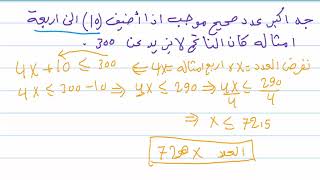 جد اكبر عدد صحيح موجب اذا اضيف (10) الى اربعة
امثاله كان الناتج لا يزيد عن 300 .
نفرض العدد x ⇐ اربع امثاله = 4x
4x + 10 ≤ 300
4x ≤ 300 - 10 ⇒ 4x ≤ 290 ⇒ 4x/4 ≤ 290/4
⇒ x ≤ 72,5
العدد x = 72